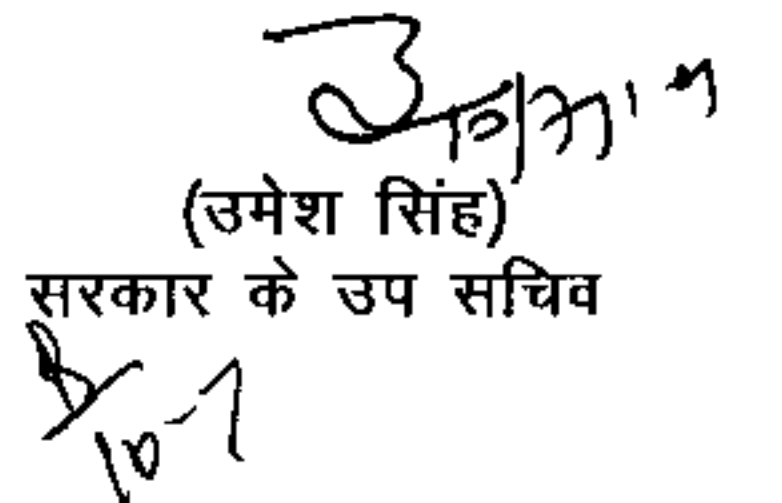 (उमेश सिंह)
सरकार के उप सचिव
10-7